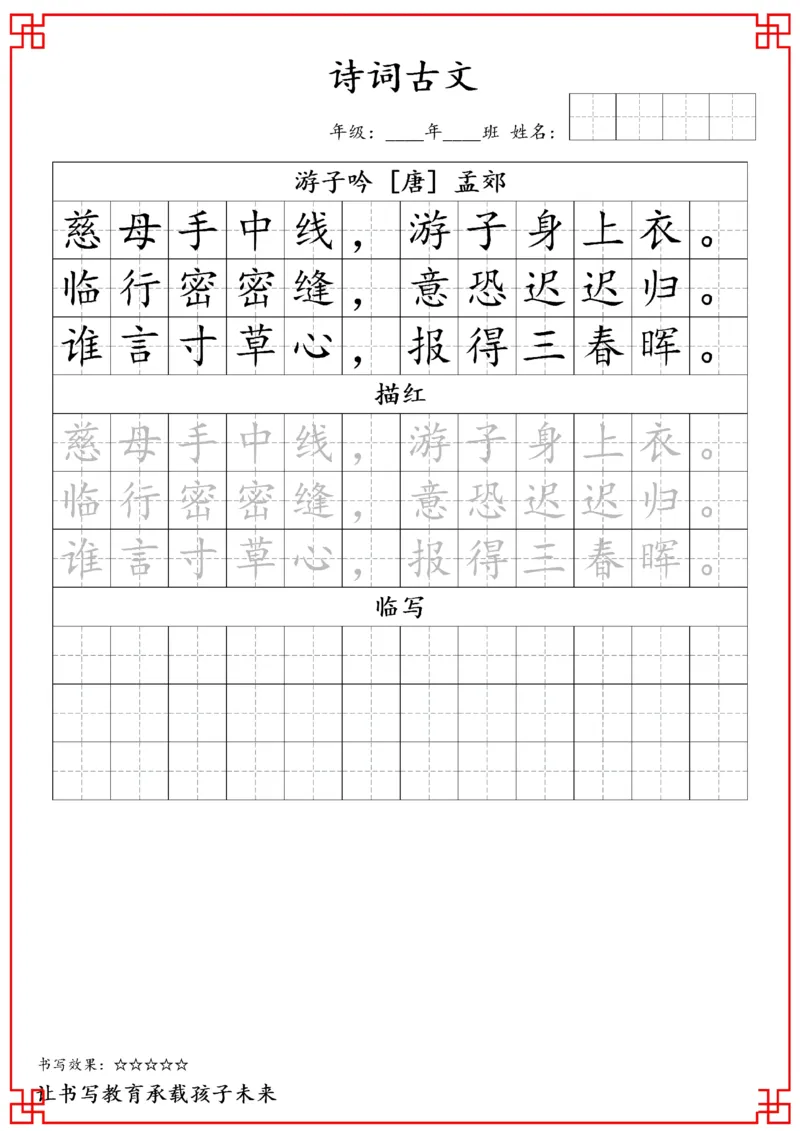 诗词古文
年级：____年____班 姓名：
游子吟 [唐] 孟郊
慈母手中线，游子身上衣。
临行密密缝，意恐迟迟归。
谁言寸草心，报得三春晖。
描红
慈母手中线，游子身上衣。
临行密密缝，意恐迟迟归。
谁言寸草心，报得三春晖。
临写
书写效果：☆☆☆☆☆
让书写教育承载孩子未来